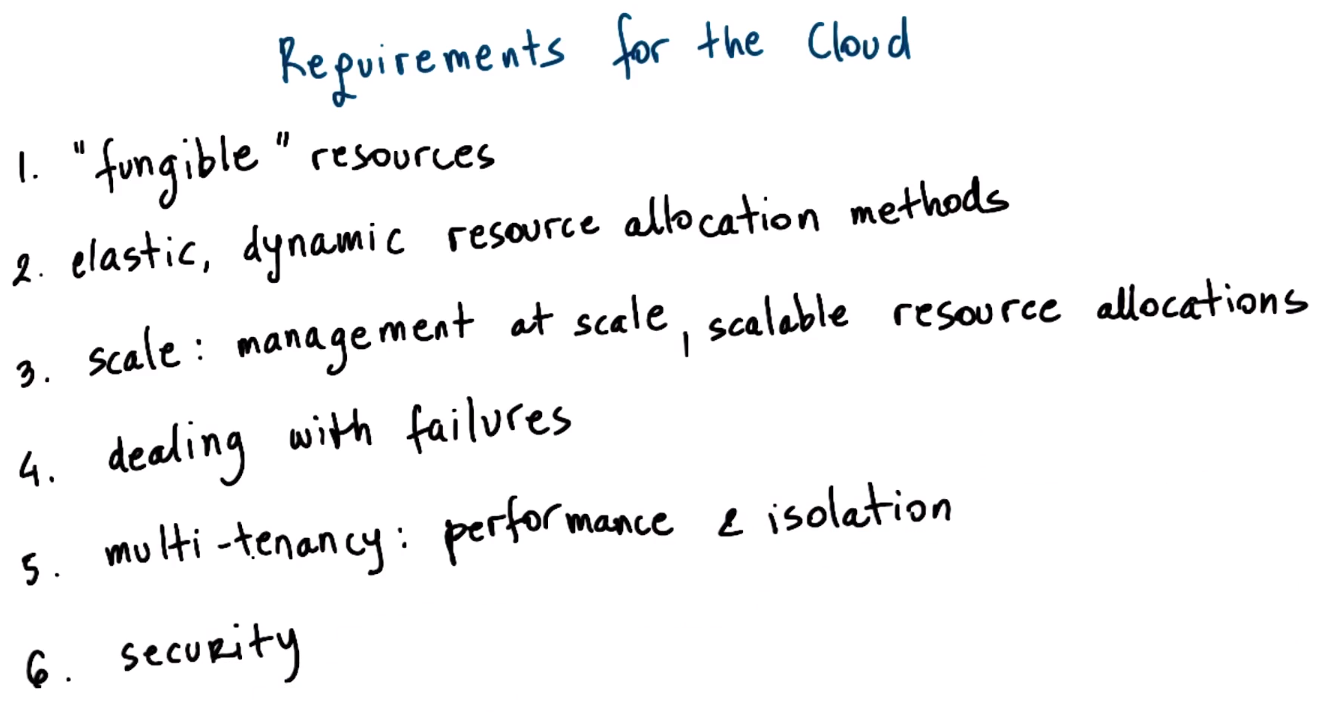 Requirements for the Cloud
1. "fungible" resources
2. elastic, dynamic resource allocation methods
3. scale: management at scale, scalable resource allocations
4. dealing with failures
5. multi-tenancy: performance & isolation
6. security